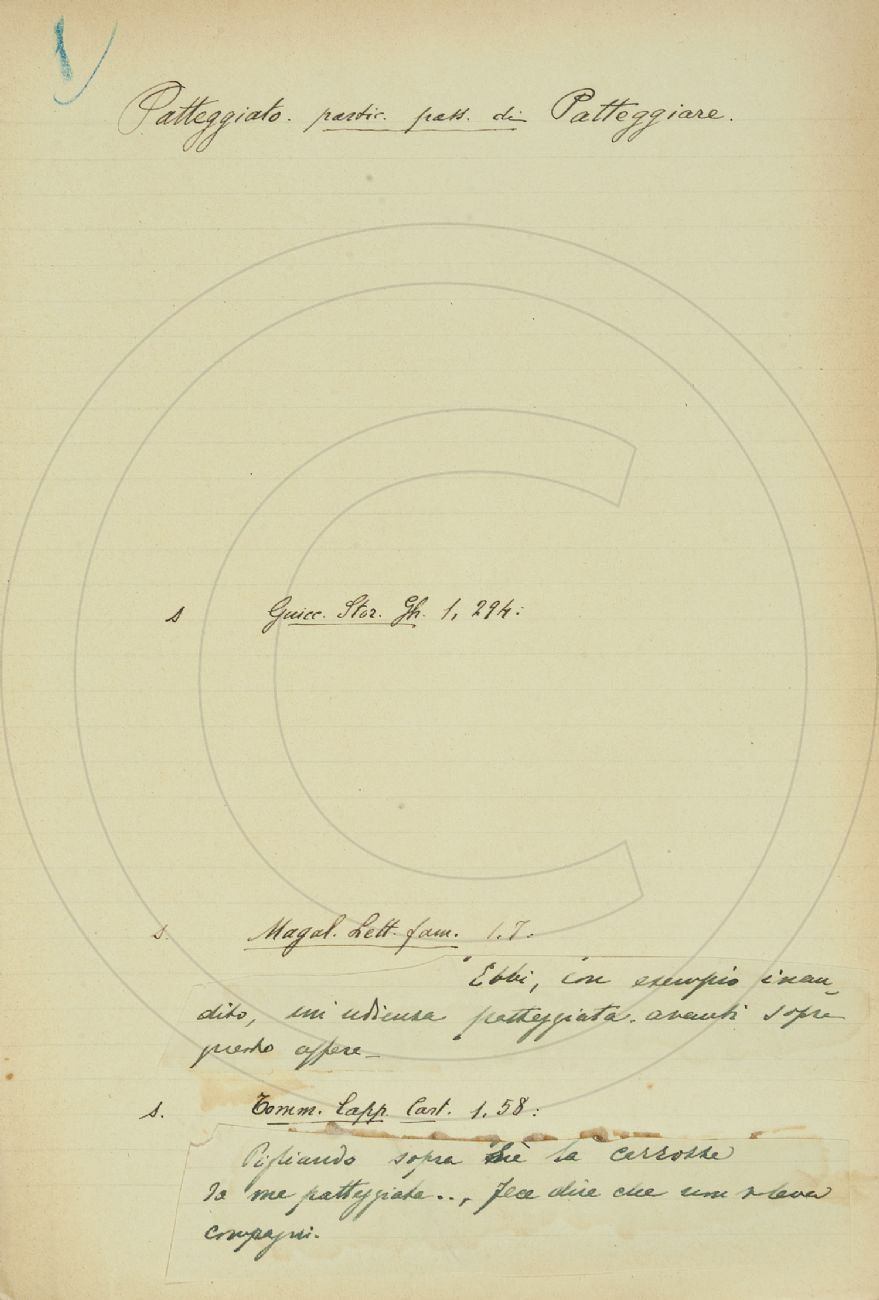 Patteggiato. partic. pass. di Patteggiare.
s Guicc. Stor. Gh. 1, 294:
s. Magal. Lett. fam. 1. 7.
Ebbi, con esempio inau-
dito, un'udienza patteggiata avanti sopra
questo affare_
s. Tomm. Capp. Cast. 1. 58:
Pigliando sopra sè la carrozza
da me patteggiata.., fece dire che non voleva
compagni.